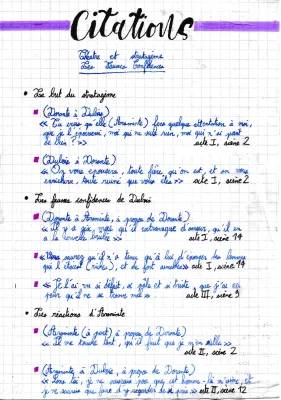 Citations
Théâtre et stratagème
Les Fausses Confidences
• Le but du stratagème
(Dorante à Dubois)
« Tu crois qu'elle (Araminte) fera quelque attention à moi,
que je l'épouserai, moi qui ne suis rien, moi qui n'ai point
de bien ? » acte I, scène 2
(Dubois à Dorante)
« On vous épousera, toute fière qu'on est, et on vous
enrichira, tout ruiné que vous êtes » acte I, scène 2
• Les fausses confidences de Dubois
(Dubois à Araminte, à propos de Dorante)
« Il y a six mois qu'il extravague d'amour, qu'il en
a la », acte I, scène 14
« Vous saurez qu'il n'a tenu qu'à lui d'épouser des femmes
qui l'étaient (riches), et de fort aimables » acte I, scène 14
« Je l'ai vu si défait, si pâle et si triste, que j'ai eu
peur qu'il ne se trouve mal » acte III, scène 9
• Les réactions d'Araminte
(Araminte (à part) à propos de Dorante)
« Il me touche tant, qu'il faut que je m'en aille »
acte II, scène 2
(Araminte à Dubois, à propos de Dorante)
je ne pas, cet homme-là m'aime, et
je ne que faire d'y regarder de si près » acte II, scène 12